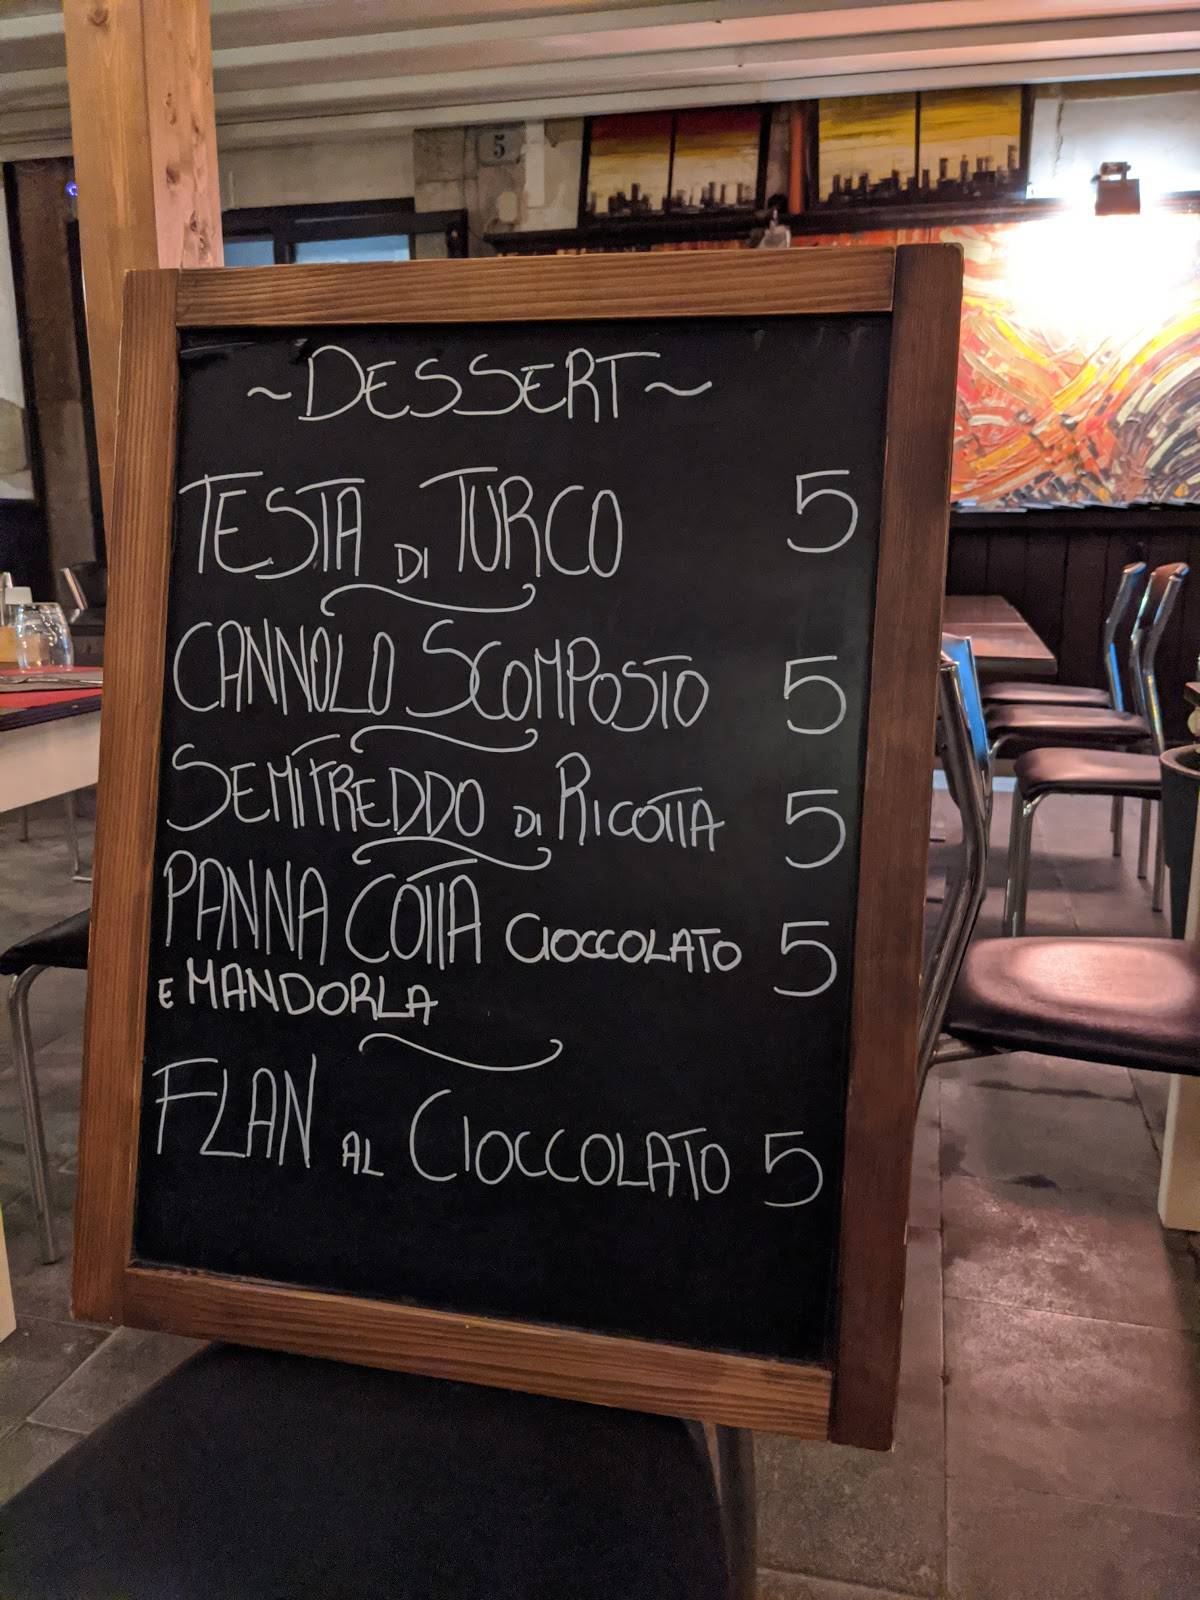 5
~DESSERT~
TESTA DI TURCO 5
CANNOLO SCOMPOSTO 5
SEMIFREDDO DI RICOTTA 5
PANNA COTTA CIOCCOLATO 5
E MANDORLA
FLAN AL CIOCCOLATO 5